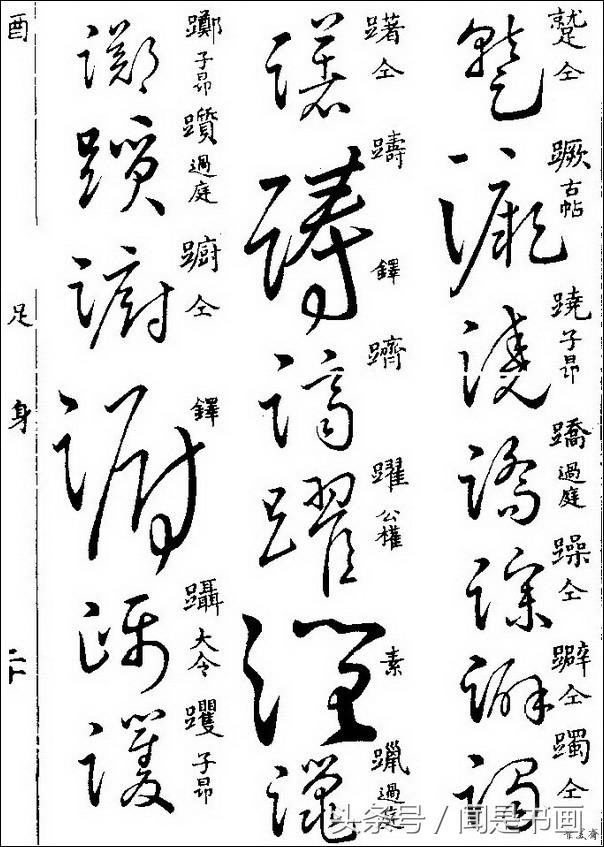 蹵 仝
蹶 古帖
蹺 子昂
蹻 過庭
躁 仝
躃 仝
躅 仝
躇 仝
躊
鐸
躋
躍 公權
素
躐 過庭
躑 子昂
躓 過庭
躕 仝
鐸
躡 大令
躩 子昂
酉
足
身
头条号 / 闻是书画